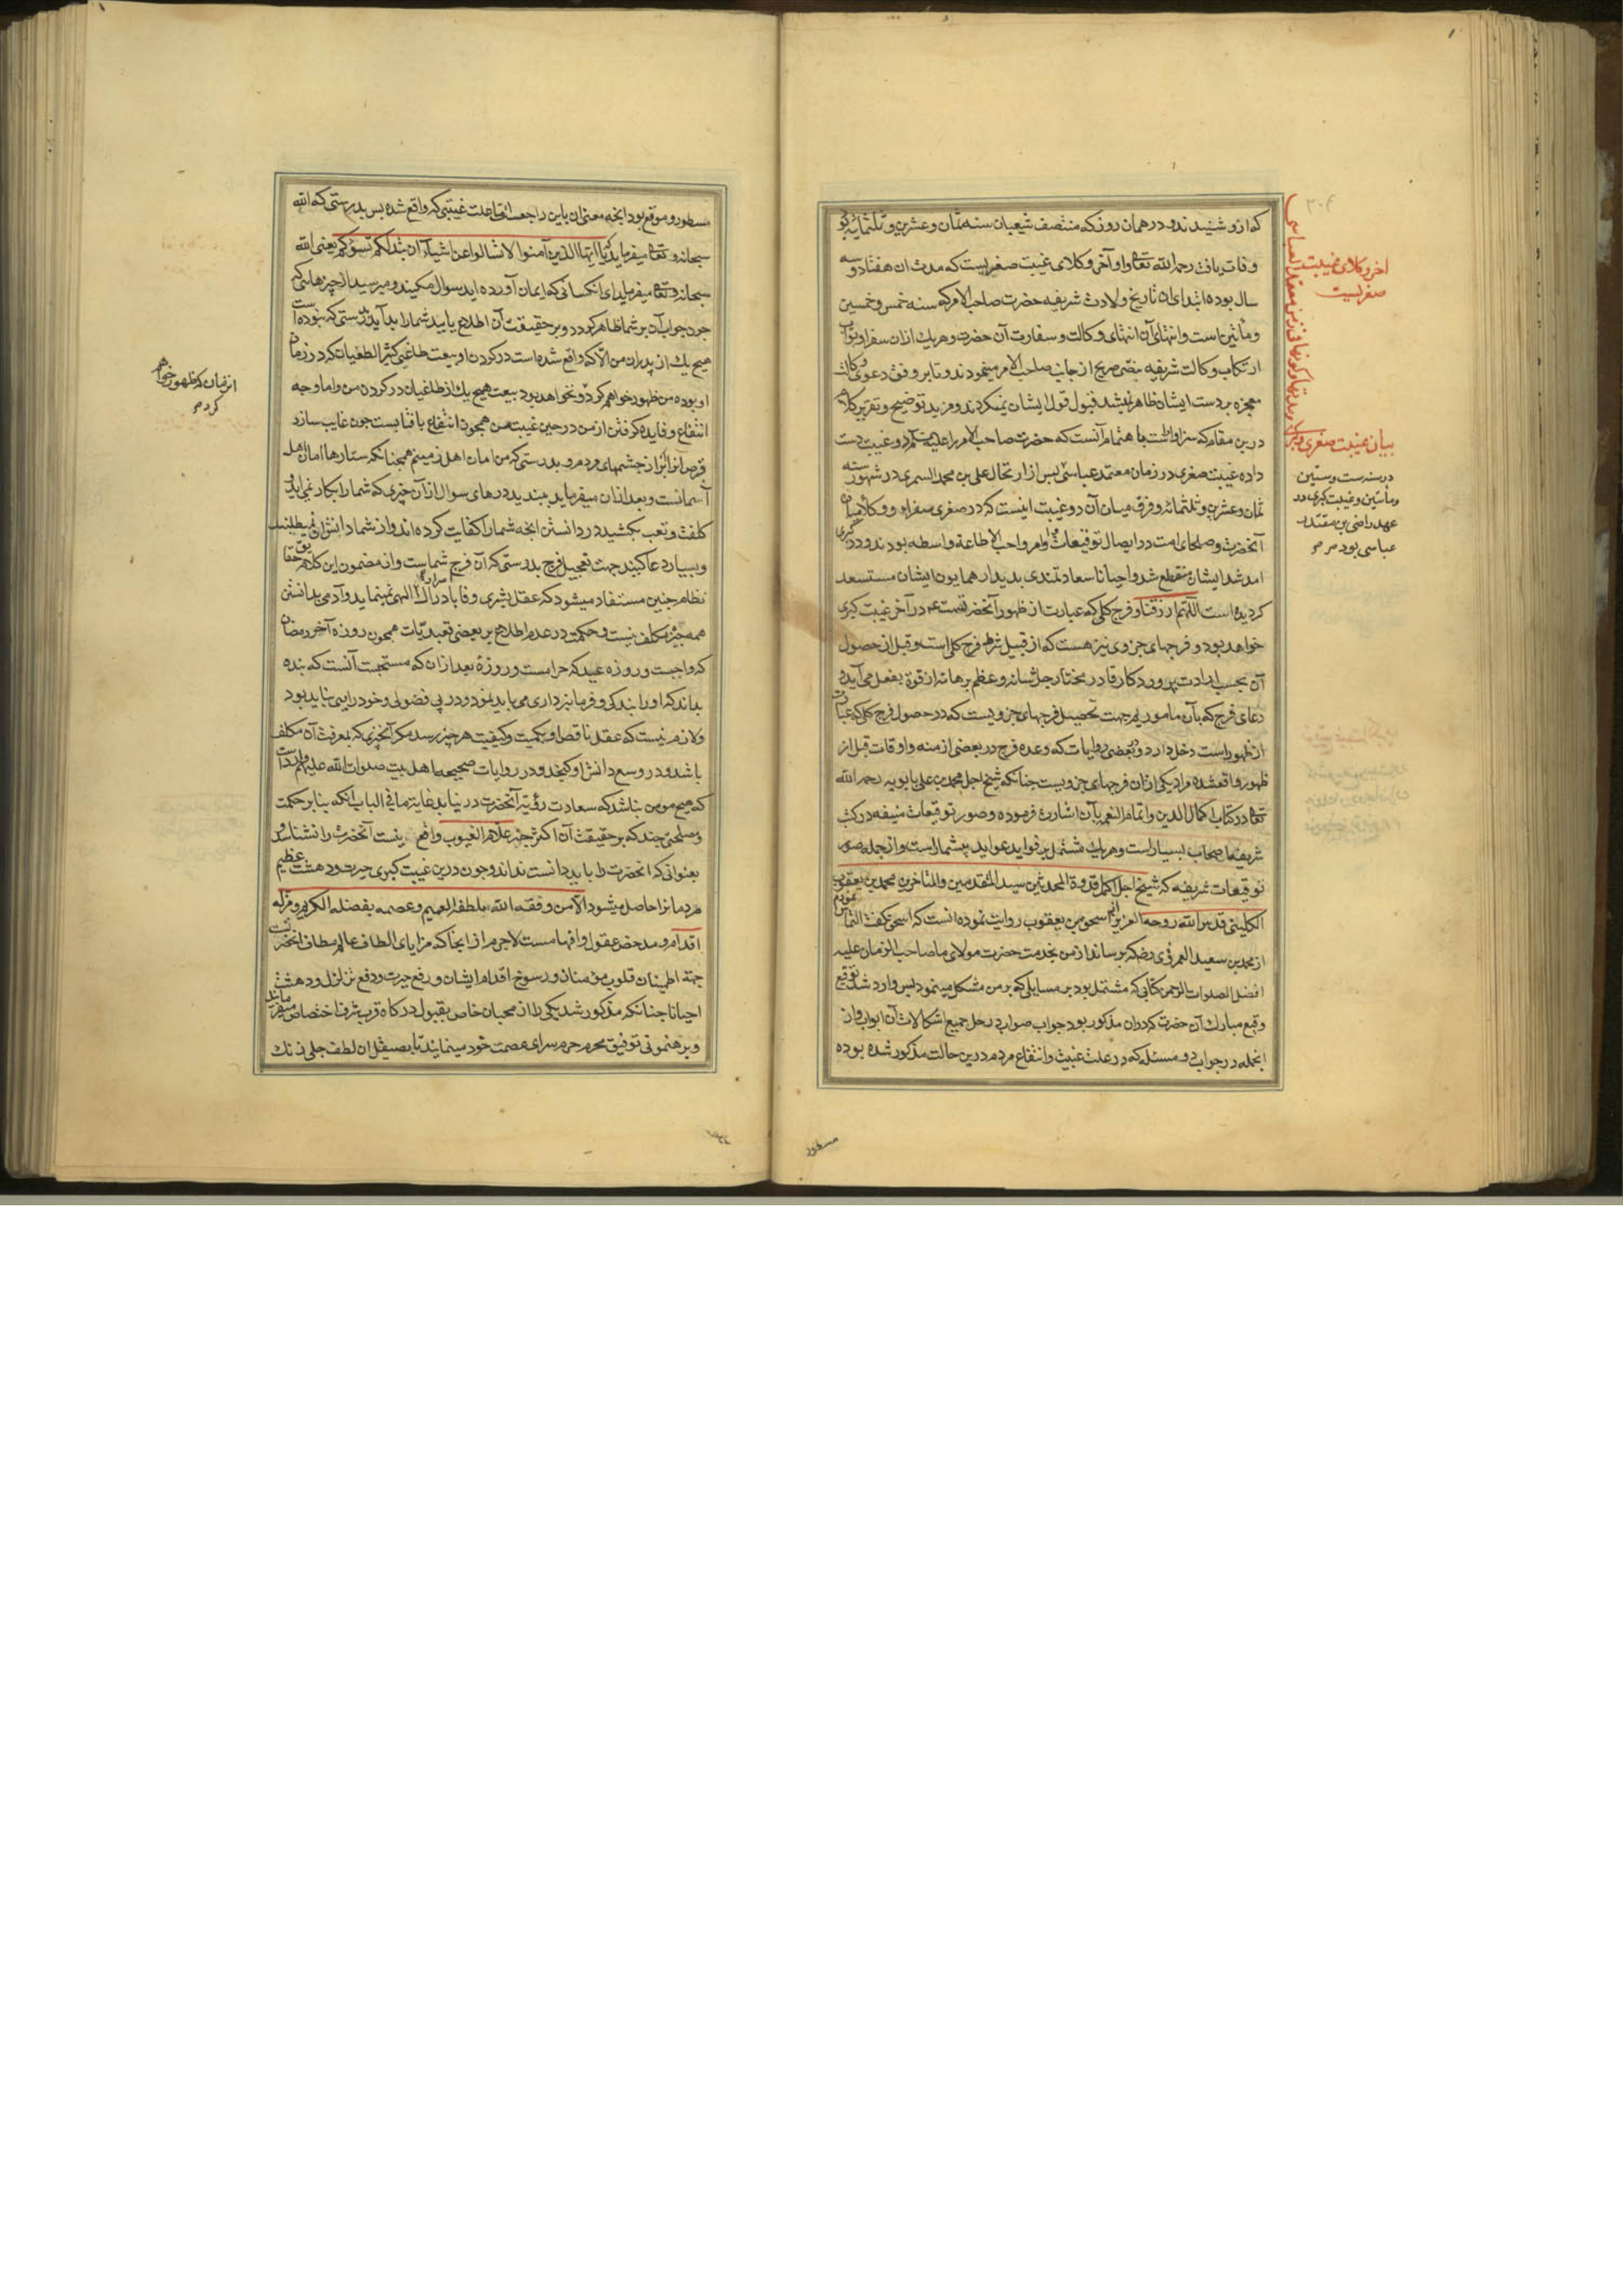 که ازو شنیدند و در همان روز که منتصف شعبان سنه ثمان و عشرین و ثلثمایه بو
وفات یافت رحمه الله تعالی و او آخر وکلای غیبت صغریست که مدت ان هفتاد و سه
سال بوده ابتدای ان تاریخ ولادت شریفه حضرت صاحب الامر که سنه خمس و خمسین
و مأتین است و انتهای آن انتهای وکالت و سفارت آن حضرت و هر یک ازان سفرا و نواب
ارتکاب وکالت شریفه بنص صریح از جانب صاحب الامر مینمودند و تا بر وفق دعوی وکالت
معجزه بر دست ایشان ظاهر نمیشد قبول قول ایشان نمیکردند و مزید توضیح و تقریر کلام
درین مقام که سزاوارست باهتمام آنست که حضرت صاحب الامر را علیه السلم دو غیبت دست
داده غیبت صغری در زمان معتمد عباسی پس از ارتحال علی بن محمد السمری در شهور سنه
ثمان و عشرین و ثلثمائه و فرق میان آن دو غیبت اینست که در صغری سفرا و وکلا میان
آنحضرت و صلحای امت در ایصال توقیعات و اوامر واجب الاطاعة واسطه بودند و در کبری
امد شد ایشان منقطع شد و احیانا سعادتمندی بدیدار همایون ایشان مستسعد
کردیده است اللهم ارزقنا و فرج کلی که عبارت از ظهور آنحضرتست در آخر غیبت کبری
خواهد بود و فرجهای جزوی نیز هست که از قبیل شرط فرج کلی است و قبل از حصول
آن بحسب ارادت پروردکار قادر مختار جل شانه و عظم برهانه از قوة بفعل می آید و
دعای فرج که بآن ماموریم جهت تحصیل فرجهای جزویست که در حصول فرج کلی که عبارت
از ظهور است دخل دارد و بعضی روایات که وعده فرج در بعضی از منه و اوقات قبل از
ظهور واقعشده مراد یکی ازان فرجهای جزویست چنانکه شیخ اجل محمد بن علی بابویه رحمه الله
تعالی در کتاب اکمال الدین و اتمام النعمه بآن اشارت فرموده و صور توقیعات منیفه در کتب
شریفه اصحاب بسیار است و هر یک مشتمل بر فواید عواید بیشمار است و از جمله صور
توقیعات شریفه که شیخ اجل اکمل قدوة المحدثین سید المتقدمین و المتاخرین محمد بن یعقوب
الکلینی قدس الله روحه العزیز از اسحق بن یعقوب روایت نموده انست که اسحق کفت التماس نمودم
از محمد بن سعید العمروی رض که برساند از من بخدمت حضرت مولای ما صاحب الزمان علیه
افضل الصلوات الرحمن کتابی که مشتمل بود بر مسایلی که بر من مشکل مینمود پس وارد شد توقیع
وقیع مبارک آن حضرت که دران مذکور بود جواب صواب در حل جمیع اشکالات آن ابواب و از
انجمله در جواب دو مسئله که در علت غیبت و انتفاع مردم درین حالت مذکور شده بوده
مسطور
اخر وکلای غیبت
صغریست
بیان غیبت صغری و کبری
در سنه ست و ستین
و مأتین و غیبت کبری در
عهد راضی بن مقتدر
عباسی بود
مسطور و موقع بود انچه معنی ان باین راجعست اما علت غیبتی که واقع شده پس بدرستی که الله
سبحانه و تعالی میفرماید یا ایها الذین آمنوا لا تسالوا عن اشیاء ان تبد لکم تسؤکم یعنی الله
سبحانه و تعالی میفرماید ای انکسانی که ایمان آورده اید سوال مکنید و مپرسید از چیزهائی که
چون جواب آن بر شما ظاهر کردد و بر حقیقت آن اطلاع یابید شما را بد آید بدرستی که نبوده است
هیچ یک از پدران من الا که واقع شده است در کردن او بیعت طاغی کثیر الطغیان که در زمان
او بوده من ظهور خواهم کرد و نخواهد بود بیعت هیچ یک از طاغیان در کردن من و اما وجه
انتفاع و فایده کرفتن از من در حین غیبت من همچون انتفاع بافتابست چون غایب سازد
قرص انرا ابر از چشمهای مردم و بدرستی که من امان اهل زمینم همچنانکه ستارها امان اهل
آسمانست و بعد ازان میفرماید ببندید درهای سوال از آن چیزی که شما را بکار نمی آید و
کلفت و تعب مکشید در دانستن انچه شما را کفایت کرده اند و از شما دانش ان نمیطلبند
و بسیار دعا کنید جهت تعجیل فرج بدرستی که آن فرج شماست و از مضمون این کلام حقایق
نظام چنین مستفاد میشود که عقل بشری وفا بادراک اسرار الهی نمینماید و آدمی بدانستن
همه چیز مکلف نیست و حکمت در عدم اطلاع بر بعضی تعبدیات همچون روزه آخر رمضان
که واجبست و روزه عید که حرامست و روزه بعد ازان که مستحبست آنست که بنده
بداند که او را بندکی و فرمانبرداری می باید نمود و در پی فضولی و خود رایی نباید بود
و لازم نیست که عقل ناقص او بکمیت و کیفیت هر چیز رسد مکر آنچیزی که بمعرفت آن مکلف
باشد و در وسع دانش او کنجد و در روایات صحیحه اهل بیت صلوات الله علیهم وارداست
که هیچ مومن نباشد که سعادت رؤیة آنحضرت در نیابد غایة ما فی الباب انکه بنا بر حکمت
و مصلحتی چند که بر حقیقت آن اکثر جز علام الغیوب واقف نیست آنحضرت را نشناسد و
بعنوانی که انحضرت را باید دانست نداند و چون درین غیبت کبری حیرت و دهشت عظیم
مردمانرا حاصل میشود الا من وفقه الله بلطفه العمیم و عصمه بفضله الکریم و مزله
اقدام و مدحض عقول و افهامست لاجرم از انجا که مزایای الطاف عالم مطاف انحضرتست
جهة اطمینان قلوب مؤمنان و رسوخ اقدام ایشان و رفع حیرت و دفع تزلزل و دهشت
احیانا چنانکه مذکور شد یکی را از محبان خاص بقبول درکاه قرب شرف اختصاص میفرمایند
و برهنمونی توفیق محرم حرم سرای عصمت خود مینمایند تا بصیقل ان لطف جلی زنک
از میان که ظهور خواهم
کرد